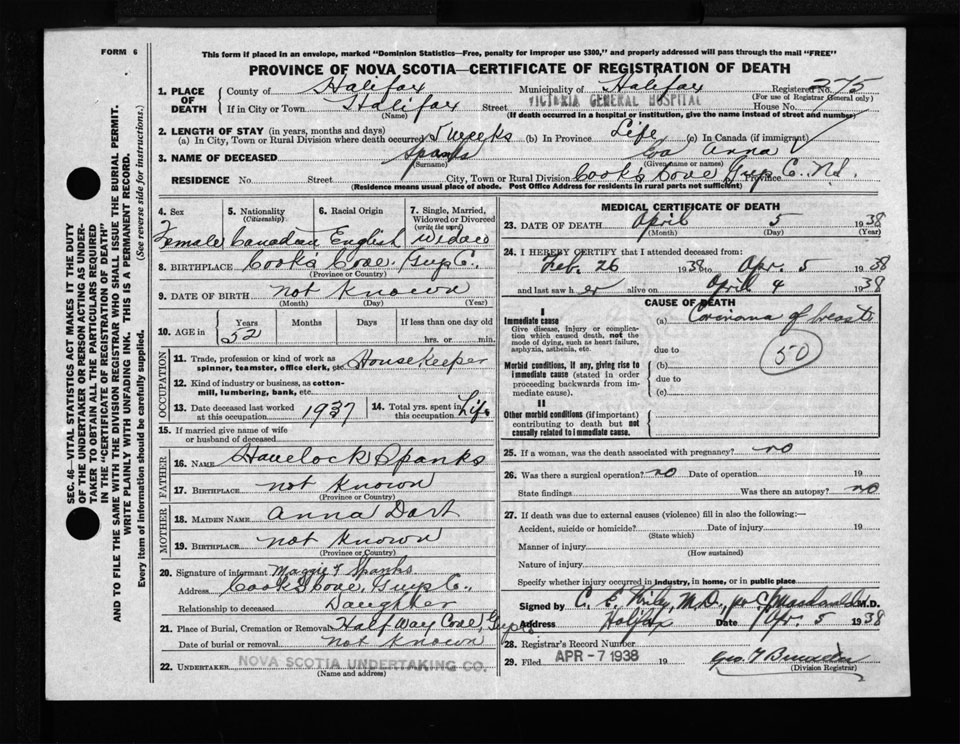 FORM 6
This form if placed in an envelope, marked "Dominion Statistics—Free, penalty for improper use $300," and properly addressed will pass through the mail "FREE"
PROVINCE OF NOVA SCOTIA—CERTIFICATE OF REGISTRATION OF DEATH
1. PLACE OF DEATH County of Halifax Municipality of Halifax Registered No. 275
(For use of Registrar General only)
If in City or Town Halifax Street VICTORIA GENERAL HOSPITAL House No.
(Name) (If death occurred in a hospital or institution, give the name instead of street and number)
2. LENGTH OF STAY (in years, months and days)
(a) In City, Town or Rural Division where death occurred 5 weeks (b) In Province Life (c) In Canada (if immigrant)
3. NAME OF DECEASED Spanks Eva Anna
(Surname) (Given name or names)
RESIDENCE No. Street City, Town or Rural Division Cook's Cove Guys. Co. Province N.S.
(Residence means usual place of abode. Post Office Address for residents in rural parts not sufficient)
SEC. 46—VITAL STATISTICS ACT MAKES IT THE DUTY
OF THE UNDERTAKER OR PERSON ACTING AS UNDER-
TAKER TO OBTAIN ALL THE PARTICULARS REQUIRED
IN THE "CERTIFICATE OF REGISTRATION OF DEATH"
AND TO FILE THE SAME WITH THE DIVISION REGISTRAR WHO SHALL ISSUE THE BURIAL PERMIT.
WRITE PLAINLY WITH UNFADING INK. THIS IS A PERMANENT RECORD.
Every item of information should be carefully supplied. (See reverse side for instructions.)
4. Sex 5. Nationality (Citizenship) 6. Racial Origin 7. Single, Married, Widowed or Divorced (write the word)
Female Canadian English Widow
8. BIRTHPLACE Cook's Cove, Guys Co.
(Province or Country)
9. DATE OF BIRTH not known
(Month) (Day) (Year)
10. AGE in Years Months Days If less than one day old
52 hrs. or min.
OCCUPATION
11. Trade, profession or kind of work as spinner, teamster, office clerk, etc. Housekeeper
12. Kind of industry or business, as cotton-mill, lumbering, bank, etc.
13. Date deceased last worked at this occupation 1937 14. Total yrs. spent in this occupation Life
15. If married give name of wife or husband of deceased
FATHER
16. NAME Havelock Spanks
17. BIRTHPLACE not known
(Province or Country)
MOTHER
18. MAIDEN NAME Anna Dort
19. BIRTHPLACE not known
(Province or Country)
20. Signature of informant Maggie F Spanks
Address Cook's Cove, Guys Co.
Relationship to deceased Daughter
21. Place of Burial, Cremation or Removal Half Way Cove, Guys Co
Date of burial or removal not known
22. UNDERTAKER NOVA SCOTIA UNDERTAKING CO.
(Name and address)
MEDICAL CERTIFICATE OF DEATH
23. DATE OF DEATH April 5 1938
(Month) (Day) (Year)
24. I HEREBY CERTIFY that I attended deceased from:
Feb. 26 1938 to Apr. 5 1938
and last saw her alive on April 4 1938
CAUSE OF DEATH
I
Immediate cause
Give disease, injury or complication which caused death, not the mode of dying, such as heart failure, asphyxia, asthenia, etc.
(a) Carcinoma of breast
due to
50
Morbid conditions, if any, giving rise to immediate cause (stated in order proceeding backwards from immediate cause).
(b)
due to
(c)
II
Other morbid conditions (if important) contributing to death but not causally related to immediate cause.
25. If a woman, was the death associated with pregnancy? no
26. Was there a surgical operation? no Date of operation 19
State findings Was there an autopsy? no
27. If death was due to external causes (violence) fill in also the following:—
Accident, suicide or homicide? Date of injury 19
(State which)
Manner of injury
(How sustained)
Nature of injury
Specify whether injury occurred in industry, in home, or in public place
Signed by C. E. M.D.
Address Halifax Date Apr. 5 1938
28. Registrar's Record Number
29. Filed APR - 7 1938 19
(Division Registrar)